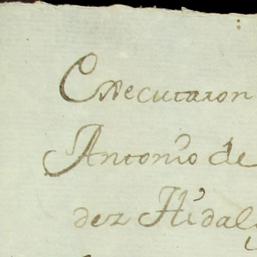 Executaron
Antonio de
dez Hidal